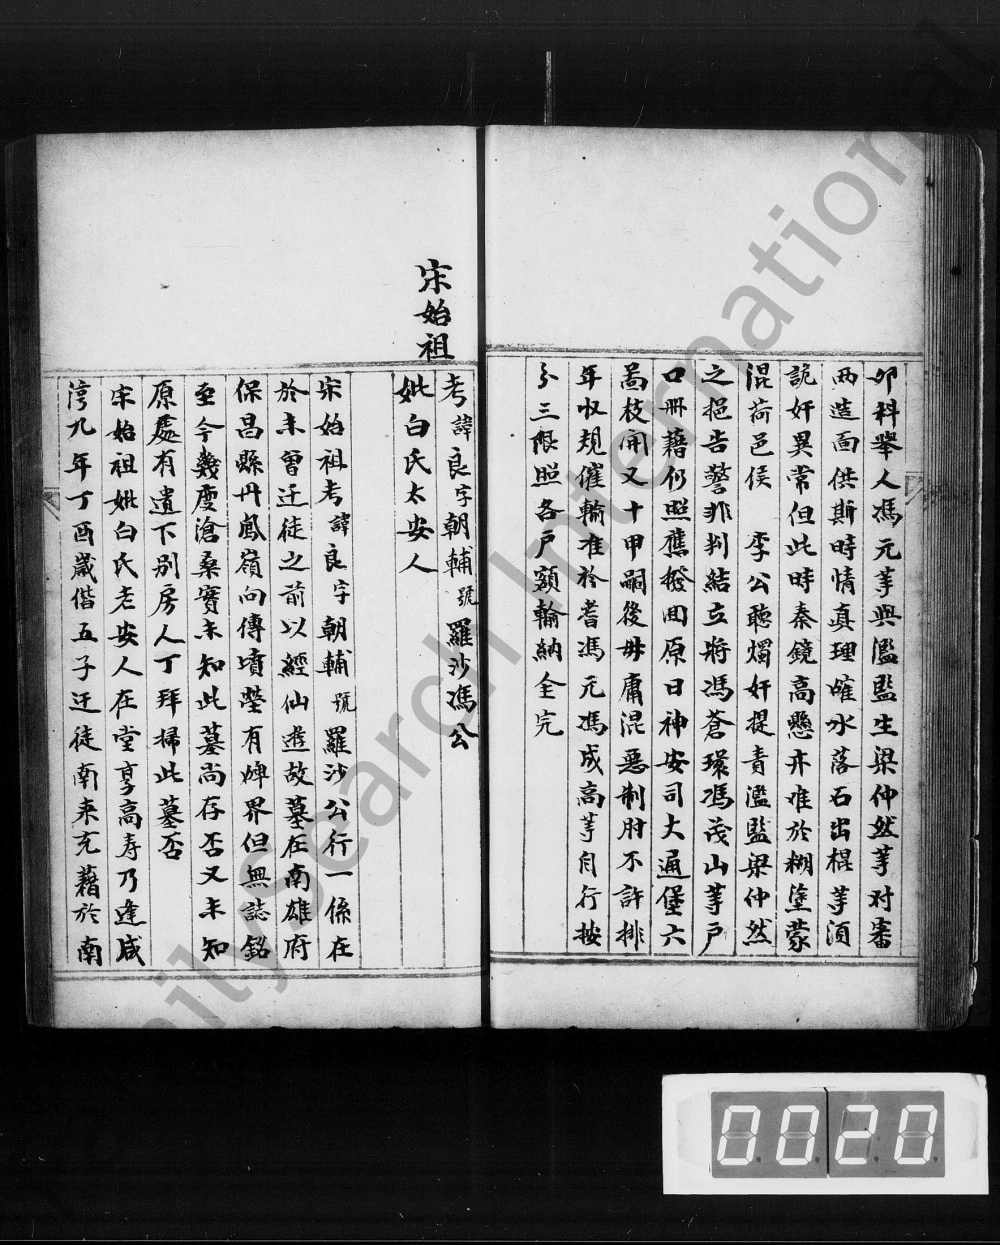 卯科舉人馮元等與濫監生梁仲然等対審
両造面供斯時情真理確水落石出棍等須
詭奸異常但此時秦鏡高懸亦难於糊塗蒙
混荷邑侯 李公聽燭奸提責濫監梁仲然
之挹告警非判結立將馮蒼環馮茂山等户
口册藉仍照舊撥回原日神安司大通堡六
啚枝開又十甲嗣後毋庸混惡制肘不許排
年収規催輸准於耆馮元馮成高等自行按
分三限照各户額輪納全完
宋始祖
考諱良字朝輔號羅沙馮公
妣白氏太安人
宋始祖考諱良字朝輔號羅沙公行一係在
於未曾迁徒之前以經仙逰故墓在南雄府
保昌縣丹鳳嶺向傳墳塋有婢界但無誌銘
至今幾度滄桑實未知此墓尚存否又未知
原處有遺下别房人丁拜掃此墓否
宋始祖妣白氏老安人在堂享高寿乃逢咸
淳九年丁酉歲偕五子迁徒南来充藉於南
0020
FamilySearch International